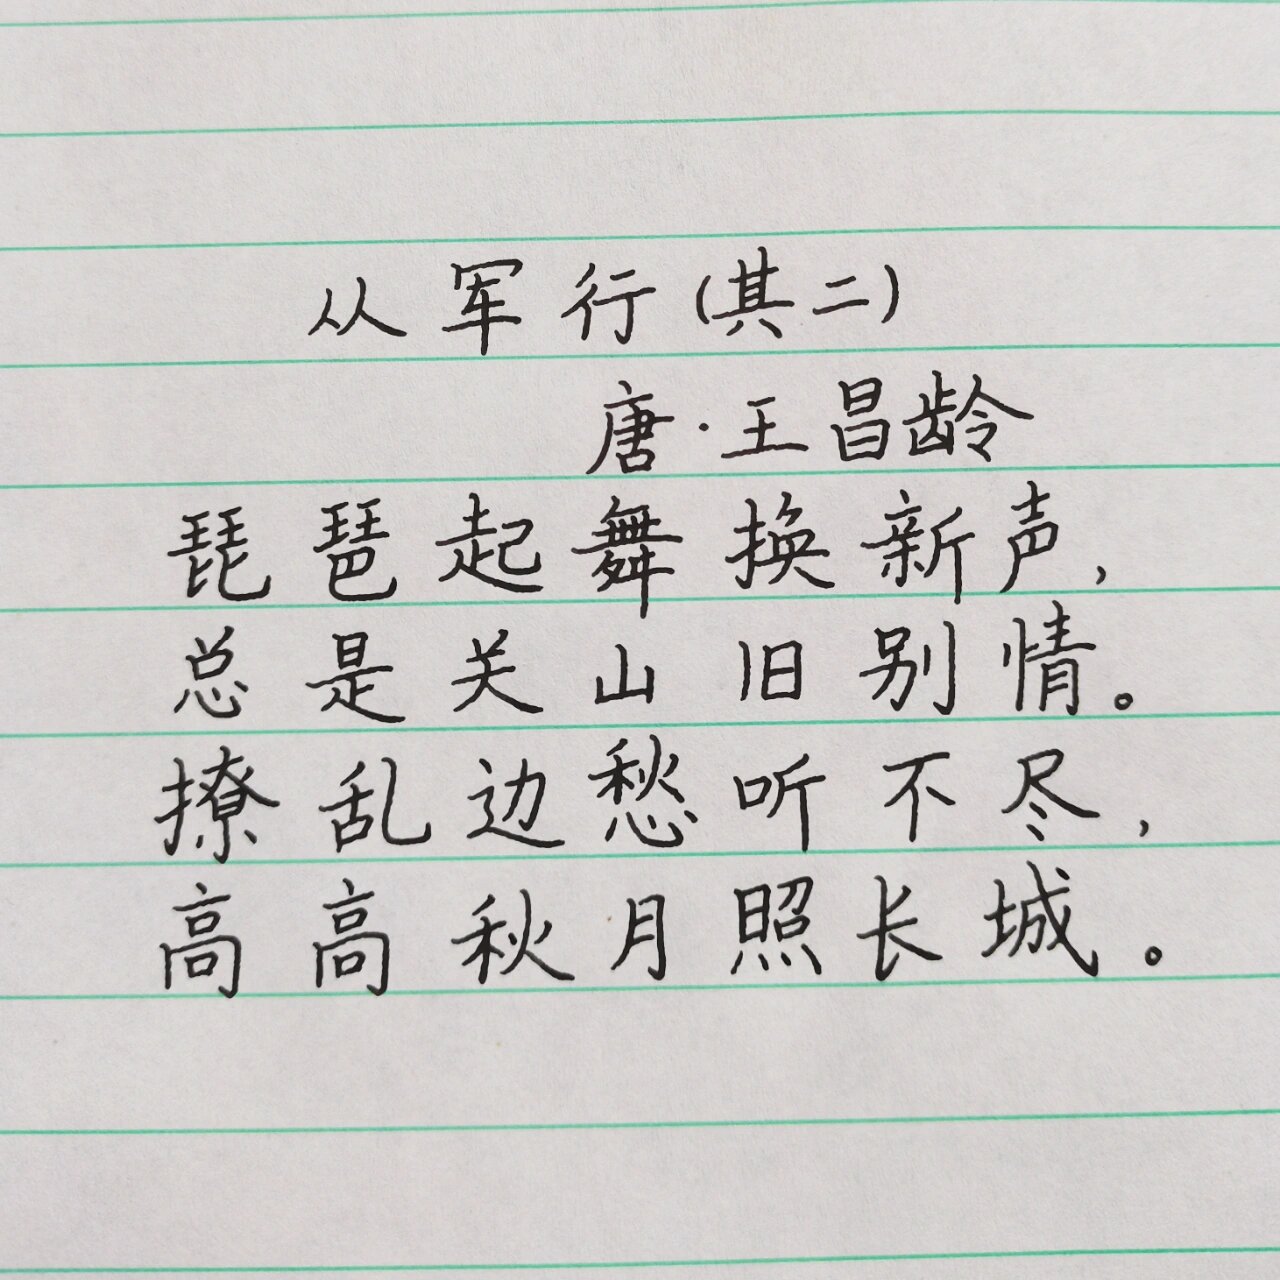 从军行(其二)
唐·王昌龄
琵琶起舞换新声,
总是关山旧别情。
撩乱边愁听不尽,
高高秋月照长城。